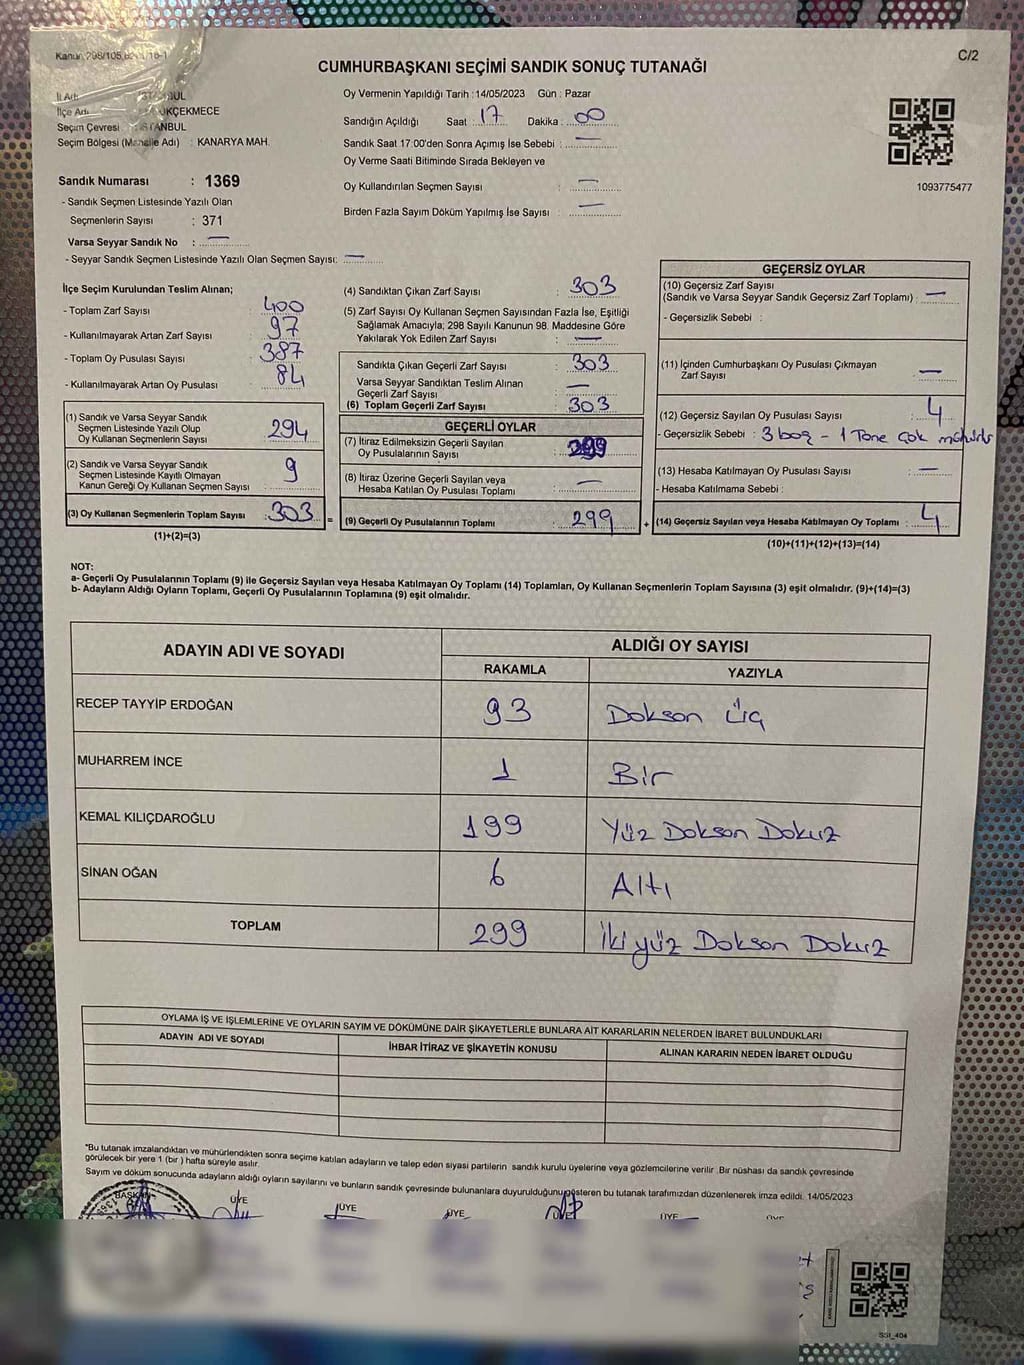 Kanun 298/105,
C/2
CUMHURBAŞKANI SEÇİMİ SANDIK SONUÇ TUTANAĞI
İl Adı
İlçe Adı
Seçim Çevresi : İSTANBUL
Seçim Bölgesi (Mahalle Adı) : KANARYA MAH.
Oy Vermenin Yapıldığı Tarih : 14/05/2023 Gün : Pazar
Sandığın Açıldığı Saat : 17 Dakika : 00
Sandık Saat 17:00'den Sonra Açımış İse Sebebi : —
Oy Verme Saati Bitiminde Sırada Bekleyen ve
Oy Kullandırılan Seçmen Sayısı : —
Birden Fazla Sayım Döküm Yapılmış İse Sayısı : —
1093775477
Sandık Numarası : 1369
- Sandık Seçmen Listesinde Yazılı Olan
Seçmenlerin Sayısı : 371
Varsa Seyyar Sandık No : —
- Seyyar Sandık Seçmen Listesinde Yazılı Olan Seçmen Sayısı: —
İlçe Seçim Kurulundan Teslim Alınan;
- Toplam Zarf Sayısı : 400
- Kullanılmayarak Artan Zarf Sayısı : 97
- Toplam Oy Pusulası Sayısı : 387
- Kullanılmayarak Artan Oy Pusulası : 84
(1) Sandık ve Varsa Seyyar Sandık
Seçmen Listesinde Yazılı Olup
Oy Kullanan Seçmenlerin Sayısı : 294
(2) Sandık ve Varsa Seyyar Sandık
Seçmen Listesinde Kayıtlı Olmayan
Kanun Gereği Oy Kullanan Seçmen Sayısı : 9
(3) Oy Kullanan Seçmenlerin Toplam Sayısı : 303 =
(1)+(2)=(3)
(4) Sandıktan Çıkan Zarf Sayısı : 303
(5) Zarf Sayısı Oy Kullanan Seçmen Sayısından Fazla İse, Eşitliği
Sağlamak Amacıyla; 298 Sayılı Kanunun 98. Maddesine Göre
Yakılarak Yok Edilen Zarf Sayısı : —
Sandıkta Çıkan Geçerli Zarf Sayısı : 303
Varsa Seyyar Sandıktan Teslim Alınan
Geçerli Zarf Sayısı : —
(6) Toplam Geçerli Zarf Sayısı : 303
GEÇERLİ OYLAR
(7) İtiraz Edilmeksizin Geçerli Sayılan
Oy Pusulalarının Sayısı : 299
(8) İtiraz Üzerine Geçerli Sayılan veya
Hesaba Katılan Oy Pusulası Toplamı : —
(9) Geçerli Oy Pusulalarının Toplamı : 299 +
GEÇERSİZ OYLAR
(10) Geçersiz Zarf Sayısı
(Sandık ve Varsa Seyyar Sandık Geçersiz Zarf Toplamı) : —
- Geçersizlik Sebebi :
(11) İçinden Cumhurbaşkanı Oy Pusulası Çıkmayan
Zarf Sayısı : —
(12) Geçersiz Sayılan Oy Pusulası Sayısı : 4
- Geçersizlik Sebebi : 3 boş - 1 Tane çok mühürlü
(13) Hesaba Katılmayan Oy Pusulası Sayısı : —
- Hesaba Katılmama Sebebi :
(14) Geçersiz Sayılan veya Hesaba Katılmayan Oy Toplamı : 4
(10)+(11)+(12)+(13)=(14)
NOT:
a- Geçerli Oy Pusulalarının Toplamı (9) ile Geçersiz Sayılan veya Hesaba Katılmayan Oy Toplamı (14) Toplamları, Oy Kullanan Seçmenlerin Toplam Sayısına (3) eşit olmalıdır. (9)+(14)=(3)
b- Adayların Aldığı Oyların Toplamı, Geçerli Oy Pusulalarının Toplamına (9) eşit olmalıdır.
ADAYIN ADI VE SOYADI
ALDIĞI OY SAYISI
RAKAMLA
YAZIYLA
RECEP TAYYİP ERDOĞAN 93 Dokson Üç
MUHARREM İNCE 1 Bir
KEMAL KILIÇDAROĞLU 199 Yüz Dokson Dokuz
SİNAN OĞAN 6 Altı
TOPLAM 299 İki yüz Dokson Dokuz
OYLAMA İŞ VE İŞLEMLERİNE VE OYLARIN SAYIM VE DÖKÜMÜNE DAİR ŞİKAYETLERLE BUNLARA AİT KARARLARIN NELERDEN İBARET BULUNDUKLARI
ADAYIN ADI VE SOYADI
İHBAR İTİRAZ VE ŞİKAYETİN KONUSU
ALINAN KARARIN NEDEN İBARET OLDUĞU
*Bu tutanak imzalandıktan ve mühürlendikten sonra seçime katılan adayların ve talep eden siyasi partilerin sandık kurulu üyelerine veya gözlemcilerine verilir .Bir nüshası da sandık çevresinde
görülecek bir yere 1 (bir ) hafta süreyle asılır.
Sayım ve döküm sonucunda adayların aldığı oyların sayılarını ve bunların sandık çevresinde bulunanlara duyurulduğunu gösteren bu tutanak tarafımızdan düzenlenerek imza edildi. 14/05/2023
BAŞKAN ÜYE ÜYE ÜYE ÜYE ÜYE
SSI_404